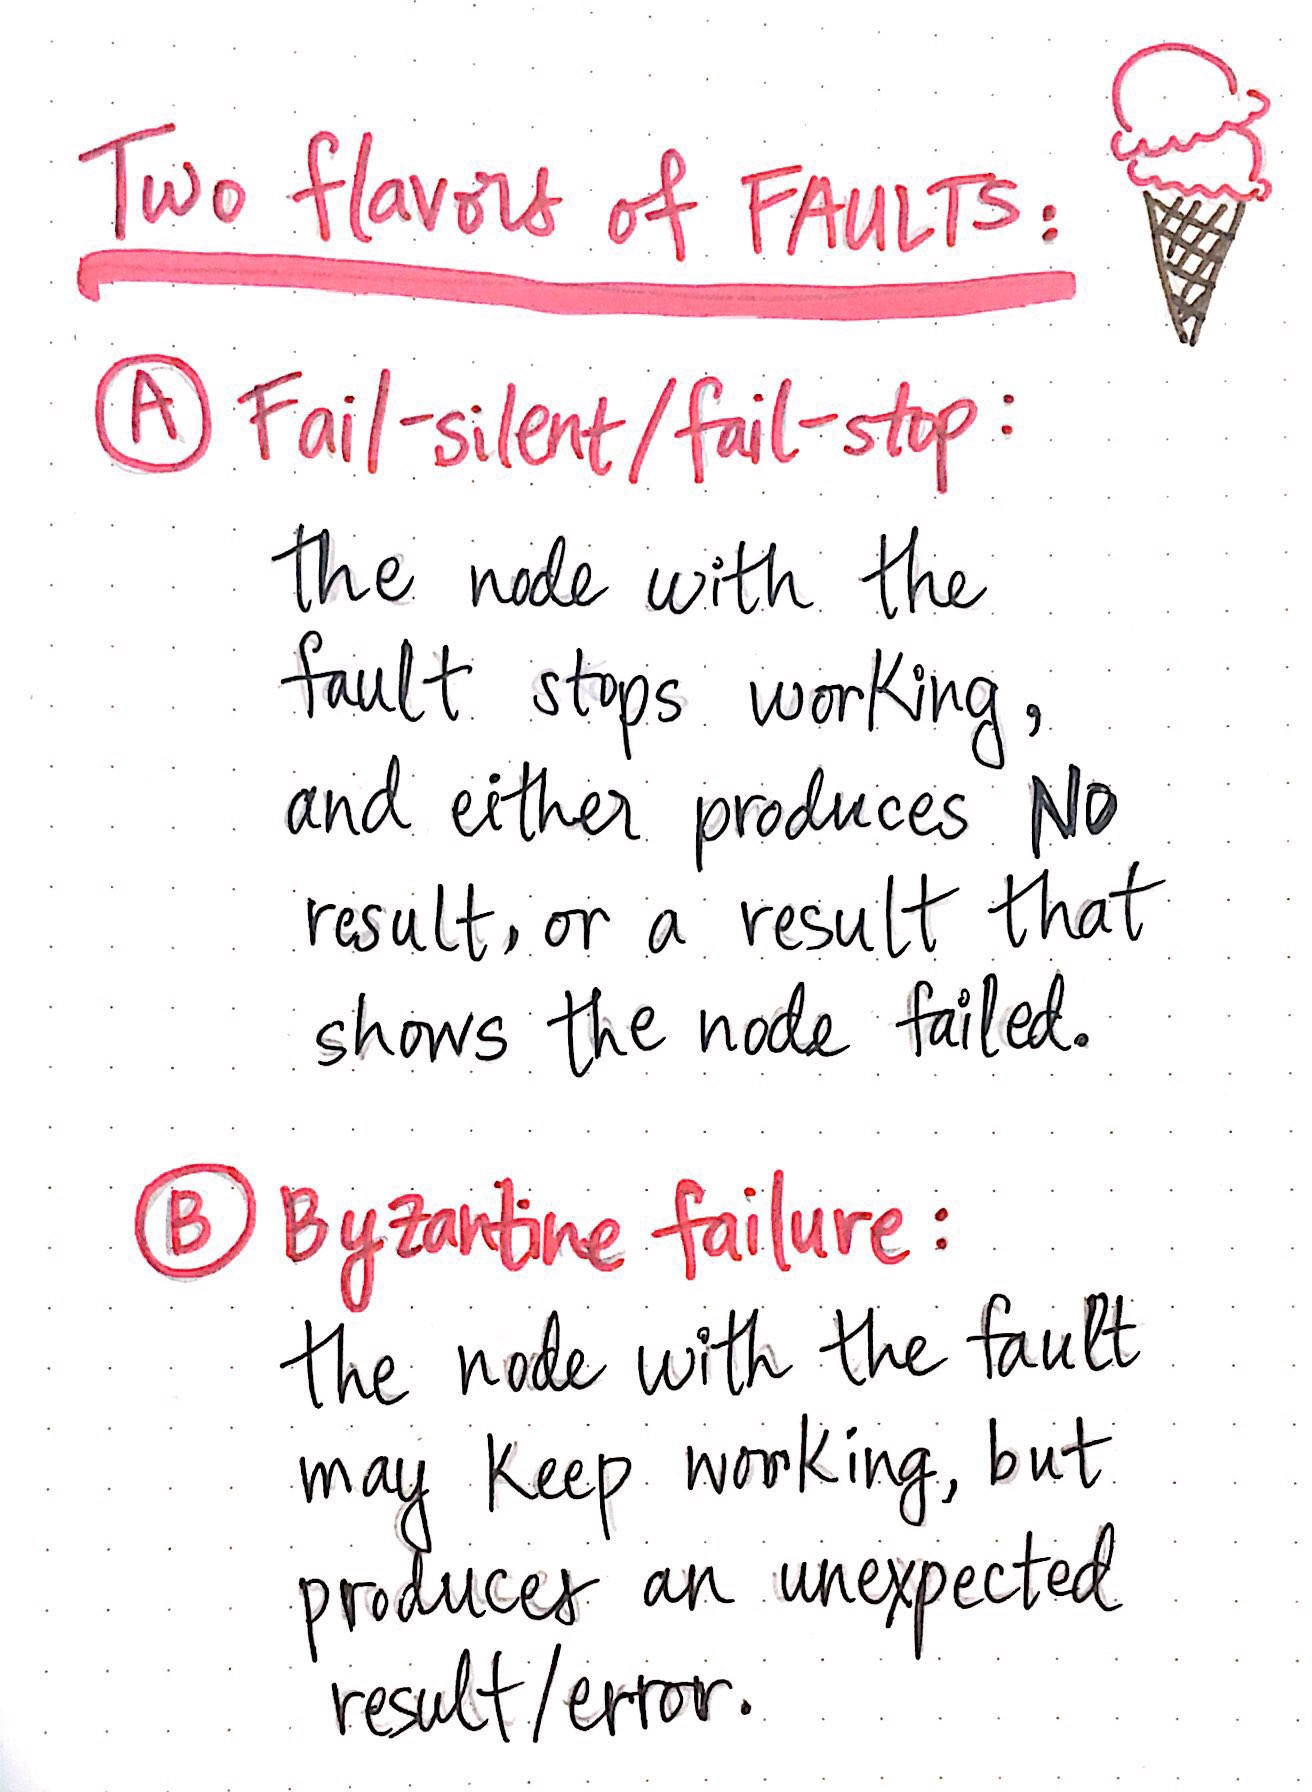 Two flavors of FAULTS:
A Fail-silent/fail-stop:
the node with the
fault stops working,
and either produces NO
result, or a result that
shows the node failed.
B Byzantine failure:
the node with the fault
may keep working, but
produces an unexpected
result/error.